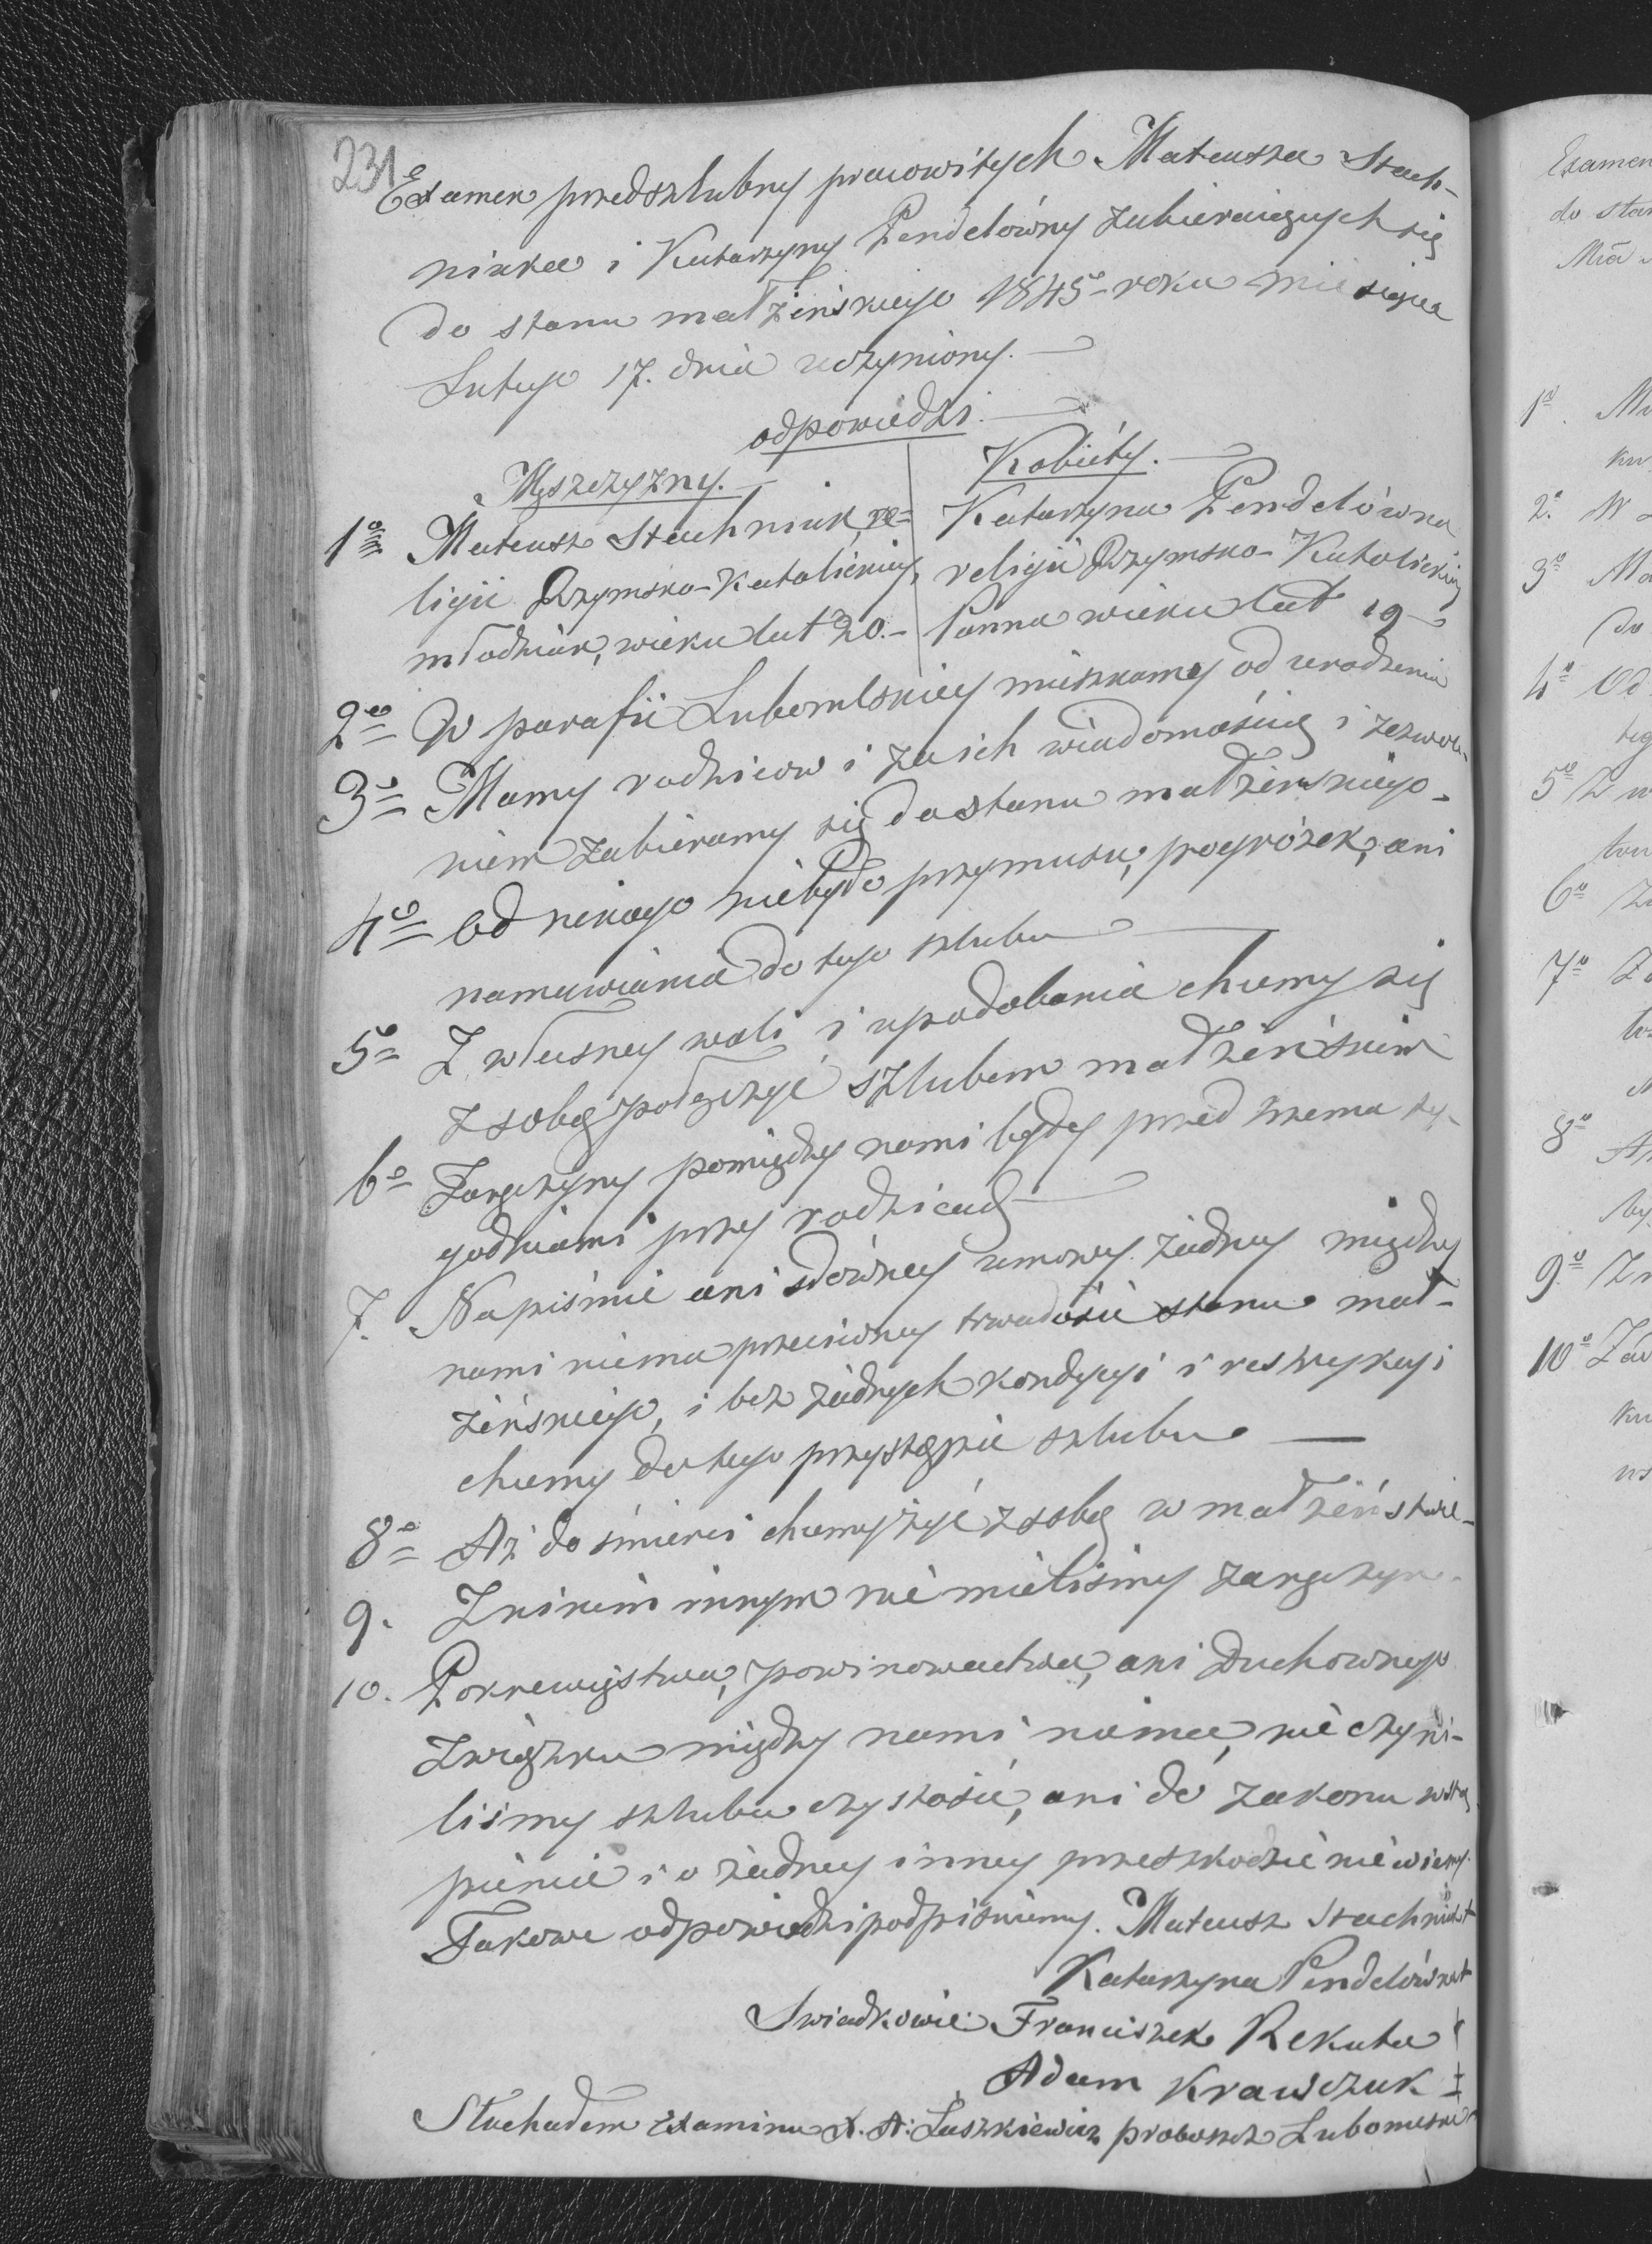 231
Examen przedszlubny pracowitych Mateusza Stach-
niaka i Katarzyny Pendelówny zabieraiących się
do stanu małżeńskiego 1845º roku miesiąca
Lutego 17. dnia uczyniony.
odpowiedzi.
Męszczyzny. Kobiéty.
1º Mateusz Stachniuk, re= Katarzyna Pendelówna
ligii Rzymsko-Katolickiey, religii Rzymsko-Katolickiey
młodzian, wieku lat 20.- Panna wieku lat 19
2º W parafii Lubomlskiey mieszkamy od urodzenia
3º Mamy rodziców i za ich wiadomością i zezwole-
niem zabieramy się do stanu małżeńskiego-
4º Od nikogo niebyło przymusu, pogróżek, ani
namawiania do tego szlubu
5º Z własney woli i upodobania chcemy się
z sobą połączyć szlubem małżeńskim
6º Zaręczyny pomiędzy nami były przed trzema ty-
godniami przy rodzicach
7. Na piśmie ani słówney umowy żadney między
nami niema przeciwney trwałości stanu mał-
żeńskiego, i bez żadnych kondycyi i restrykcyi
chcemy do tego przystąpić szlubu
8º Aż do śmierci chcemy żyć z sobą w małżeństwie-
9. Z nikim innym nie mieliśmy zaręczyn.
10. Pokrewieństwa, powinowactwa, ani Duchownego
związku między nami niema, nie czyni-
liśmy szlubu czystości, ani do zakonu wstą-
pienia i o żadney inney przeszkodzie nie wiemy.
Takowe odpowiedzi podpisuiemy. Mateusz Stachniuk +
Katarzyna Pendelówna +
Swiadkowie Franciszek Rekuta +
Adam Krawczuk +
Słuchałem Examinu X. A: Laszkiewicz proboszcz Lubomlski
Examen
do stan
1º
2º W
3º Ma
do
4º Od
teg
5º Z w
6º
7º
8º
9º Z n
10º